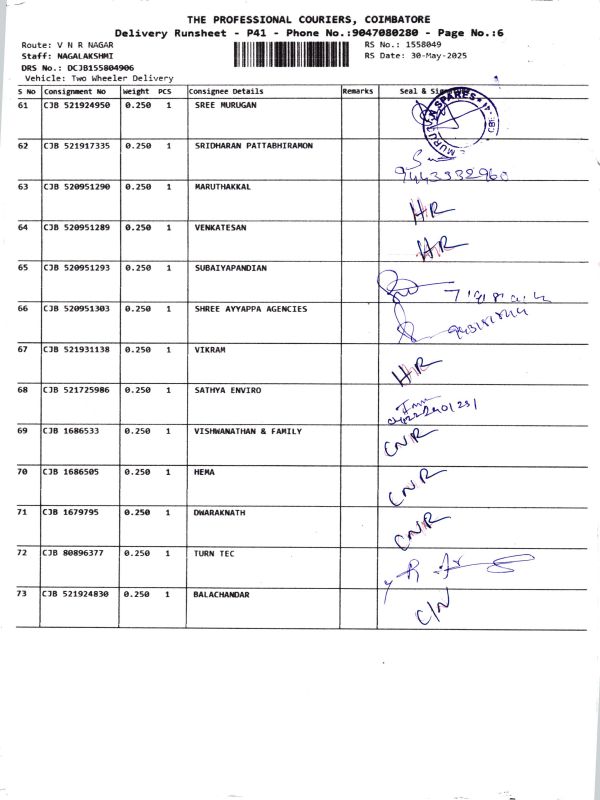 THE PROFESSIONAL COURIERS, COIMBATORE
Delivery Runsheet - P41 - Phone No.:9047080280 - Page No.:6
Route: V N R NAGAR RS No.: 1558049
Staff: NAGALAKSHMI RS Date: 30-May-2025
DRS No.: DCJB155804906
Vehicle: Two Wheeler Delivery
S No Consignment No Weight PCS Consignee Details Remarks Seal &
61 CJB 521924950 0.250 1 SREE MURUGAN
62 CJB 521917335 0.250 1 SRIDHARAN PATTABHIRAMON
9443332960
63 CJB 520951290 0.250 1 MARUTHAKKAL HR
64 CJB 520951289 0.250 1 VENKATESAN HR
65 CJB 520951293 0.250 1 SUBAIYAPANDIAN
66 CJB 520951303 0.250 1 SHREE AYYAPPA AGENCIES
67 CJB 521931138 0.250 1 VIKRAM HR
68 CJB 521725986 0.250 1 SATHYA ENVIRO
69 CJB 1686533 0.250 1 VISHWANATHAN & FAMILY CNR
70 CJB 1686505 0.250 1 HEMA CNR
71 CJB 1679795 0.250 1 DWARAKNATH CNR
72 CJB 80896377 0.250 1 TURN TEC
73 CJB 521924830 0.250 1 BALACHANDAR C/N